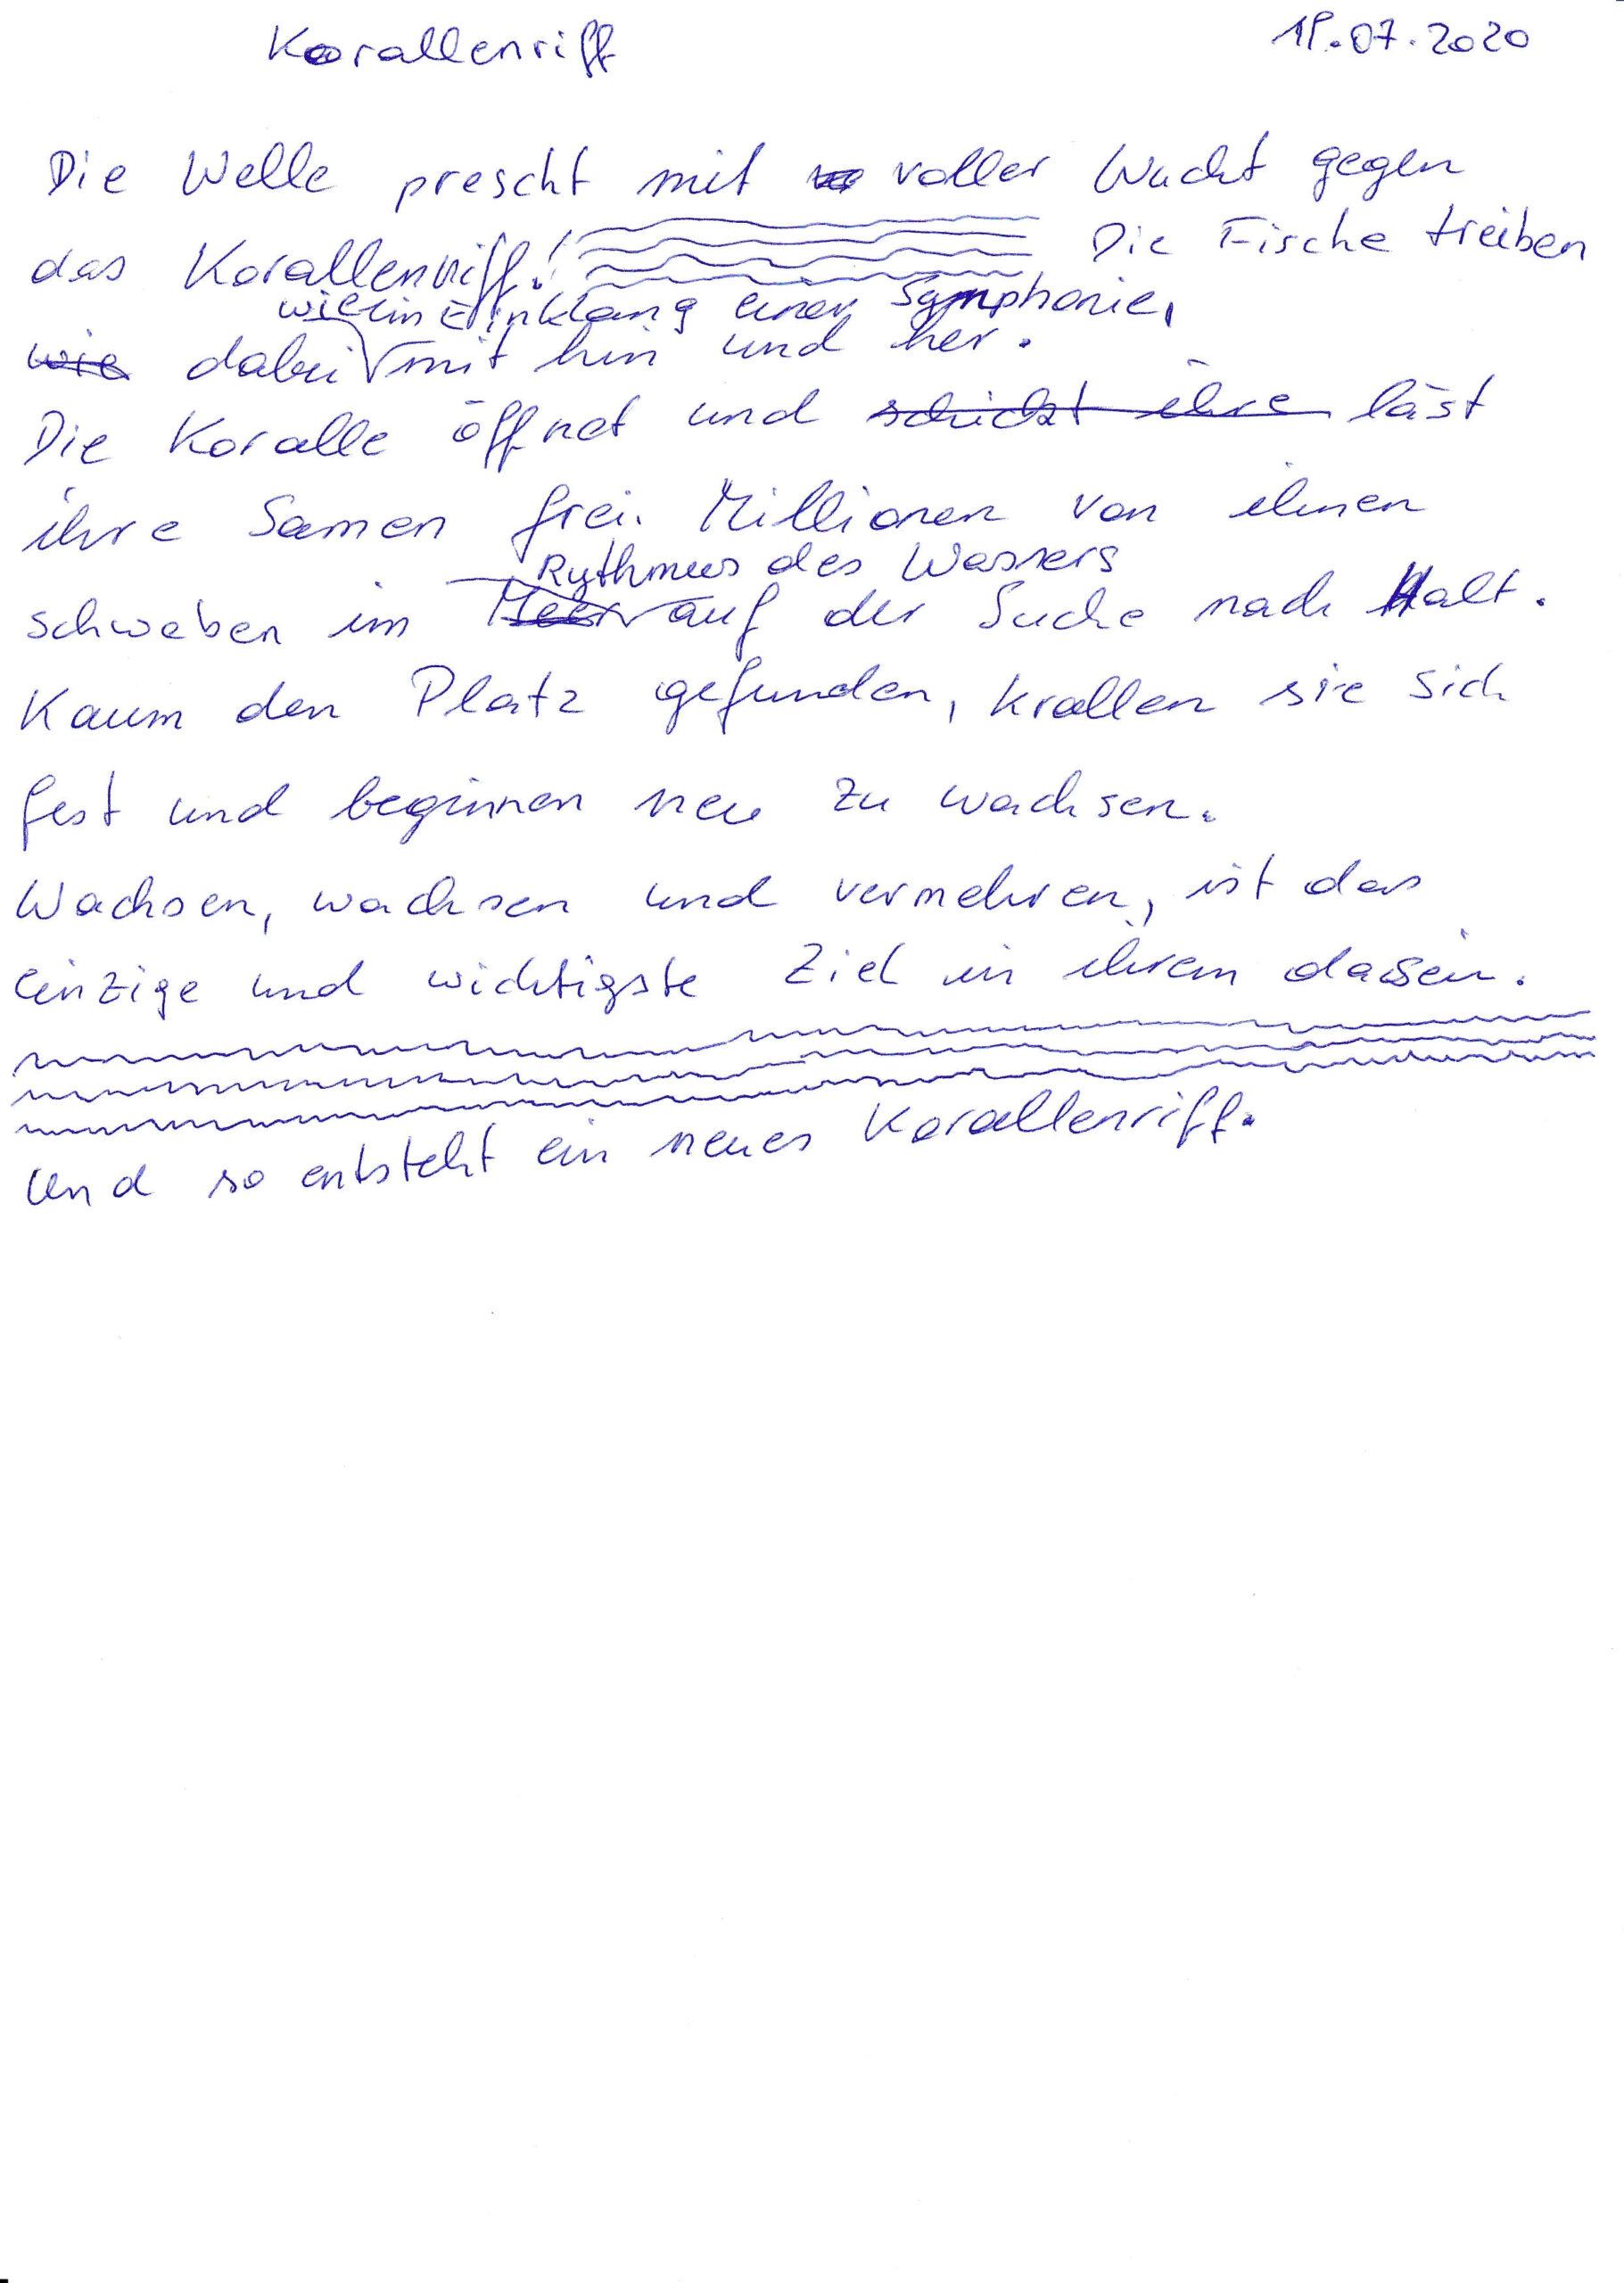 Korallenriff
.07.2020
Die Welle prescht mit voller Wucht gegen
das Korallenriff! Die Fische treiben
wie im Einklang einer Symphonie,
wie dabei mit hin und her.
Die Koralle öffnet und schickt ihre läst
ihre Samen frei. Millionen von ihnen
Rythmus des Wassers
schweben im Meer auf der Suche nach Halt.
Kaum den Platz gefunden, krallen sie sich
fest und beginnen neu zu wachsen.
Wachsen, wachsen und vermehren, ist das
einzige und wichtigste Ziel in ihrem dasein.
Und so entsteht ein neues Korallenriff.